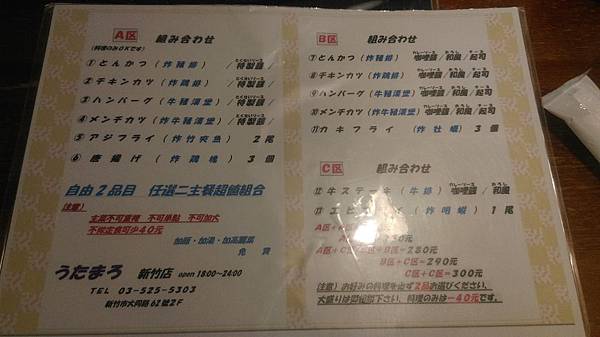 A区 組み合わせ
(料理のみOKです)
①とんかつ(炸豬排) /特製醬/
②チキンカツ(炸鶏排) /特製醬/
③ハンバーグ(牛豬漢堡) /特製醬/
④メンチカツ(炸牛豬漢堡) /特製醬/
⑤アジフライ(炸竹夾魚) 2尾
⑥唐揚げ(炸鶏塊) 3個
自由2品目 任選二主餐超值組合
注意)
主菜不可重複 不可單點 不可加大
不附定食可少40元
加飯・加湯・加高麗菜
免費
うたまろ 新竹店 open 18:00~24:00
TEL 03-525-5303
新竹市大同路62號2F
B区 組み合わせ
カレーソース おろし チーズ
⑦とんかつ(炸豬排) 咖哩醬/和風/起司
⑧チキンカツ(炸鶏排) 咖哩醬/和風/起司
⑨ハンバーグ(牛豬漢堡) 咖哩醬/和風/起司
⑩メンチカツ(炸牛豬漢堡) 咖哩醬/和風/起司
⑪カキフライ(炸牡蠣) 3個
C区 組み合わせ
カレーソース おろし
⑫牛ステーキ(牛排) 咖哩醬/和風
1尾
A区+C区=B区+B区=280元
B区+C区=290元
C区+C区=300元
注意)お好みの料理を必ず2品お選びください。
大盛りは御相談下さい、料理のみは-40元です。